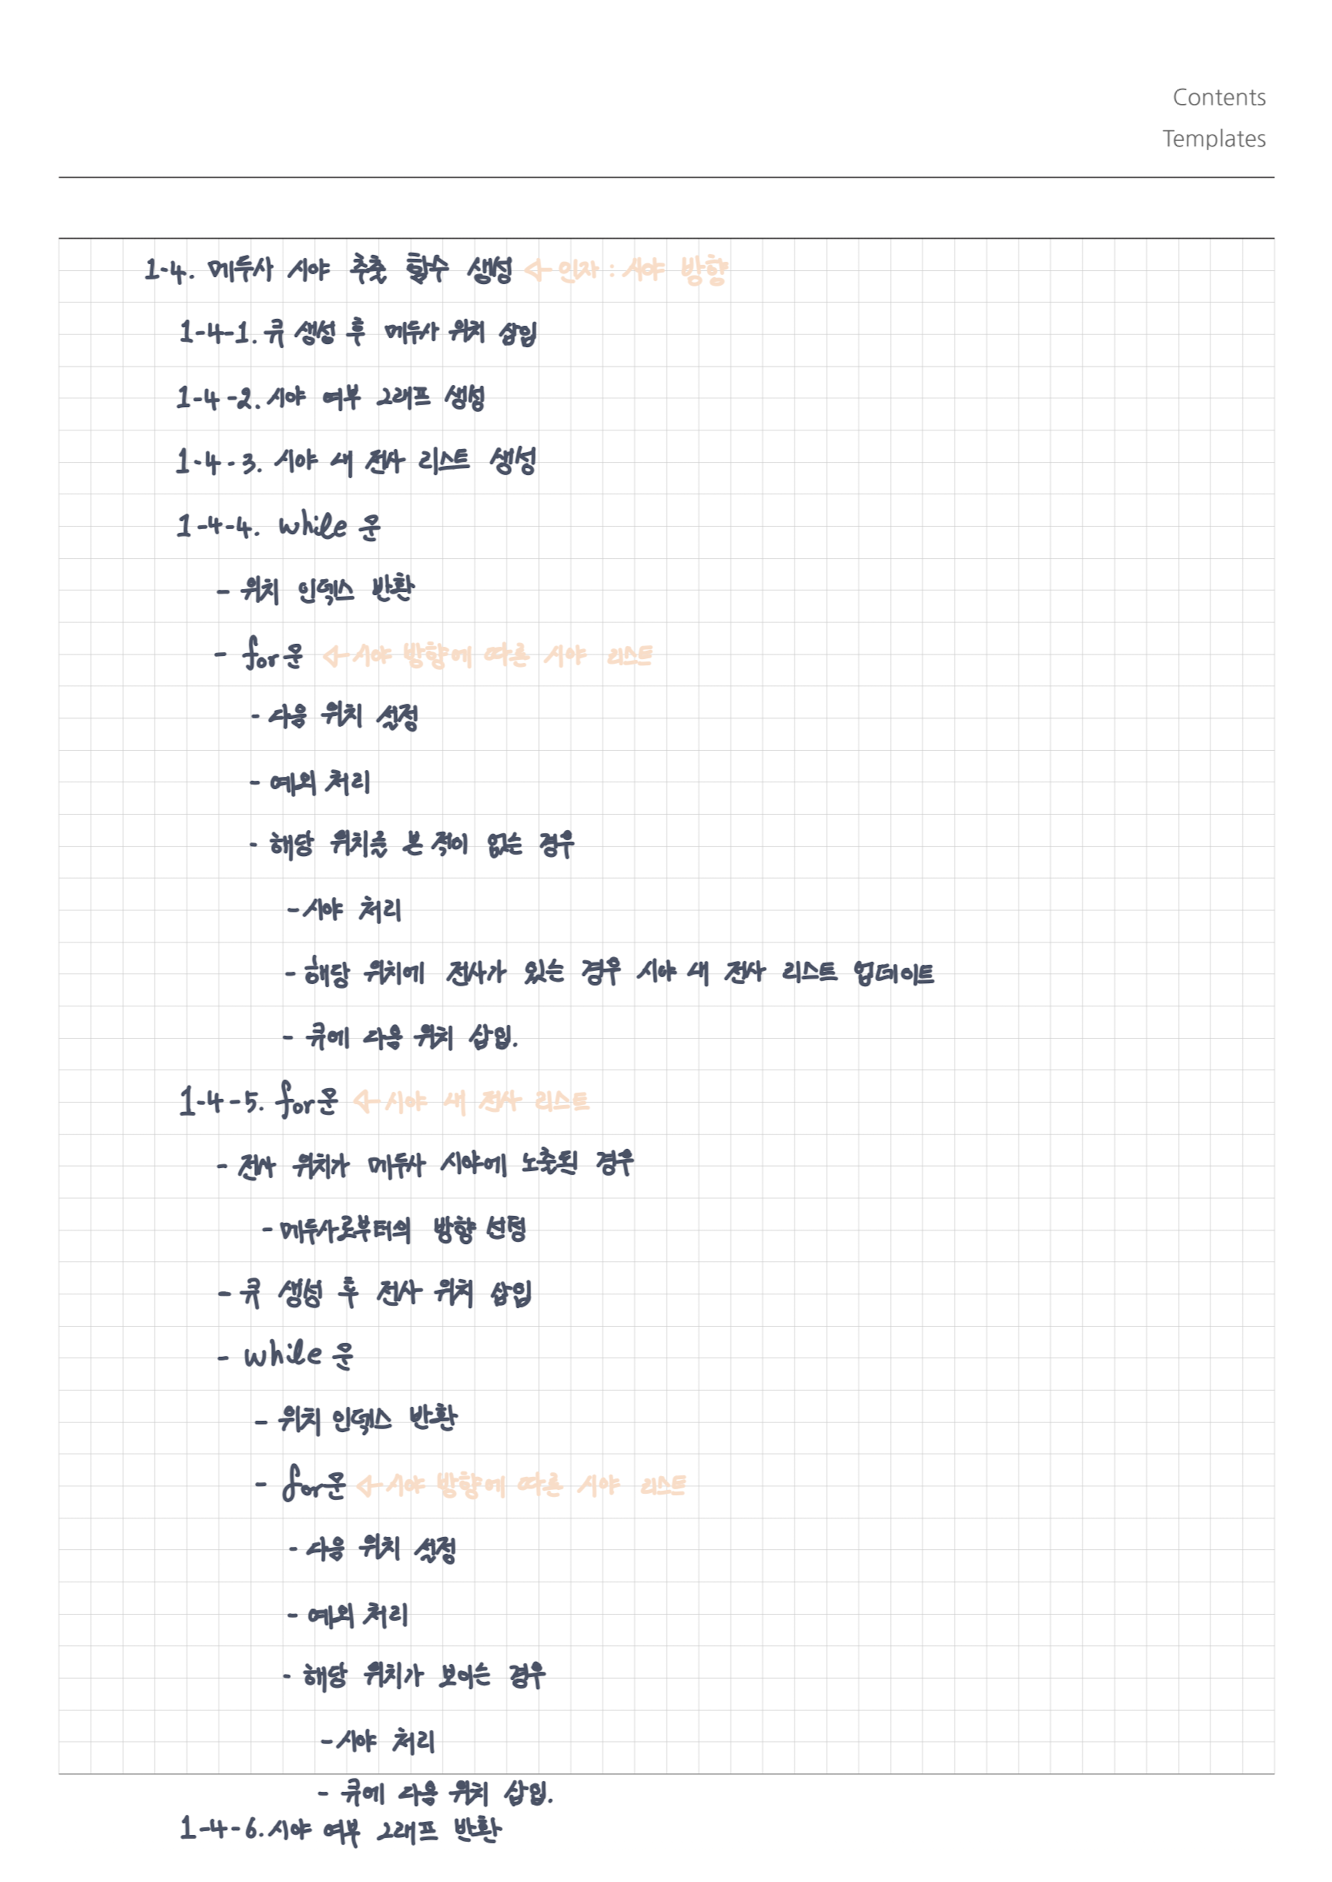 Contents
Templates
1-4. 메두사 시야 추출 함수 생성 ← 인자 : 시야 방향
1-4-1. 큐 생성 후 메두사 위치 삽입
1-4-2. 시야 여부 그래프 생성
1-4-3. 시야 내 전사 리스트 생성
1-4-4. while 문
- 위치 인덱스 반환
- for문 ← 시야 방향에 따른 시야 리스트
- 다음 위치 선정
- 예외 처리
- 해당 위치를 본 적이 없는 경우
- 시야 처리
- 해당 위치에 전사가 있는 경우 시야 내 전사 리스트 업데이트
- 큐에 다음 위치 삽입.
1-4-5. for문 ← 시야 내 전사 리스트
- 전사 위치가 메두사 시야에 노출된 경우
- 메두사로부터의 방향 선정
- 큐 생성 후 전사 위치 삽입
- while 문
- 위치 인덱스 반환
- for문 ← 시야 방향에 따른 시야 리스트
- 다음 위치 선정
- 예외 처리
- 해당 위치가 보이는 경우
- 시야 처리
- 큐에 다음 위치 삽입.
1-4-6. 시야 여부 그래프 반환